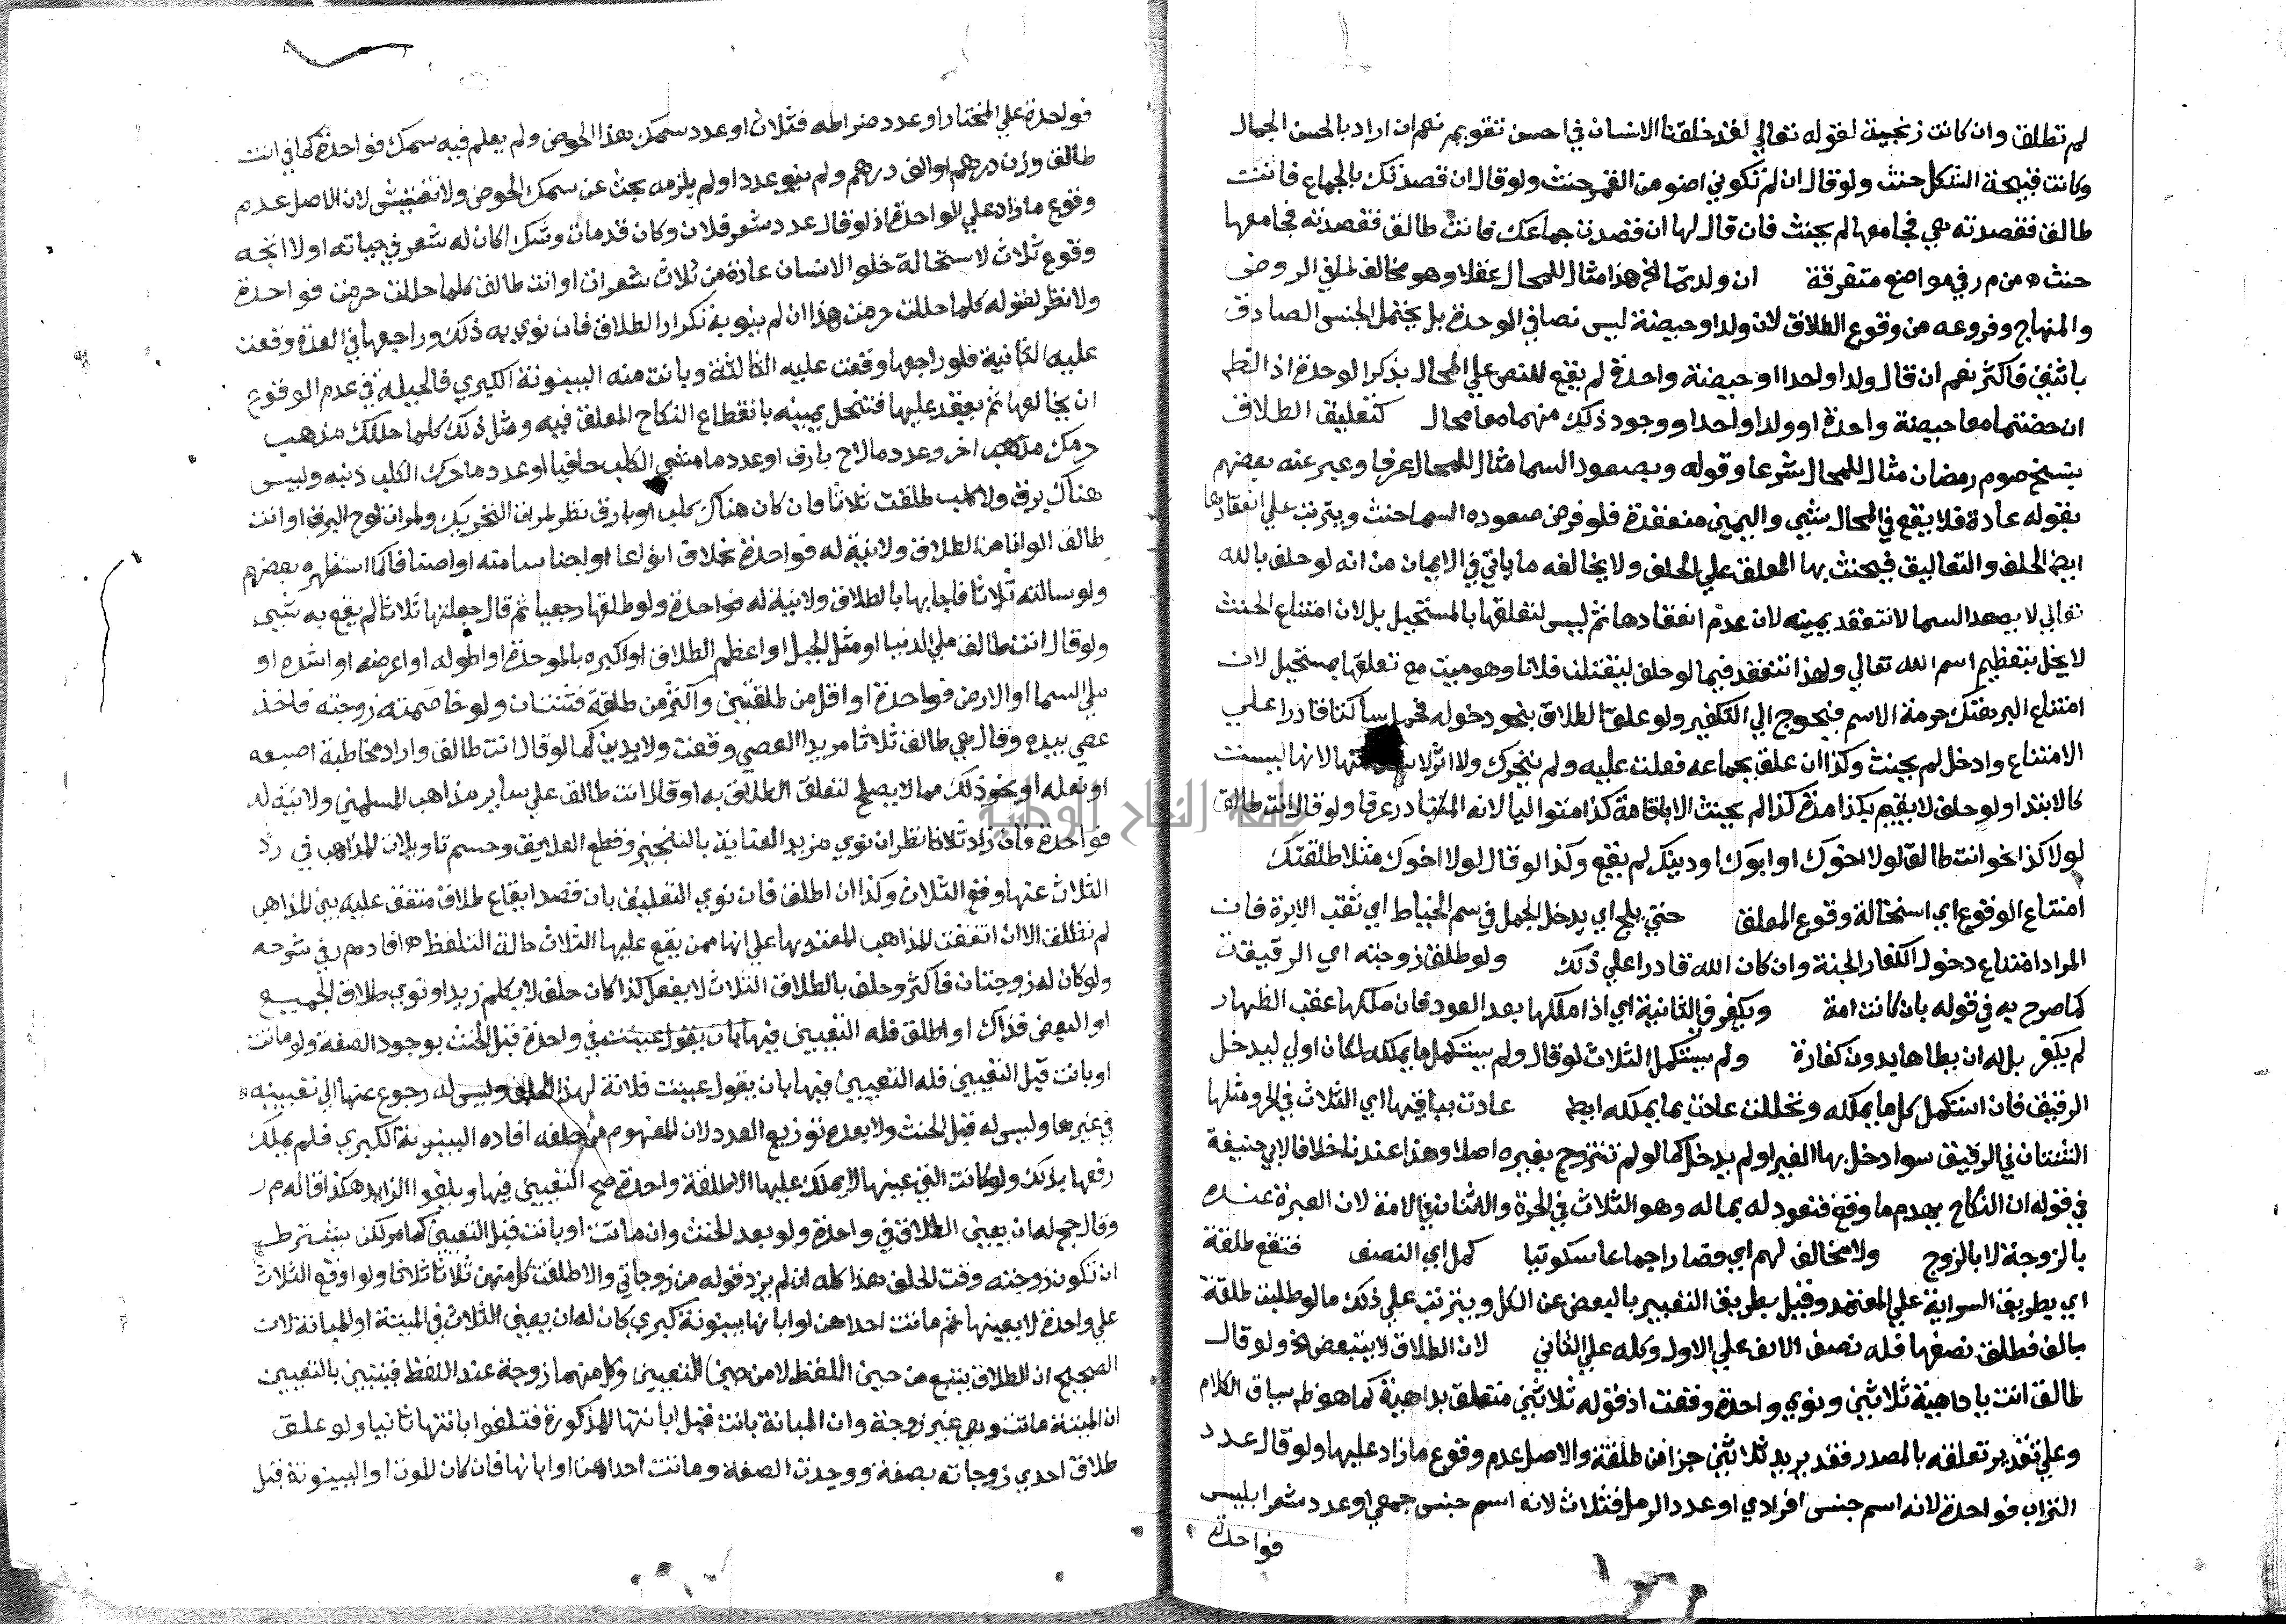 لم تطلق وان كانت زنجية لقوله تعالي لقد خلقنا الانسان في احسن تقويم نعم ان اراد بالحسن الجمال
وكانت قبيحة الشكل حنث ولو قال ان لم تكوني اضو من القمر حنث ولو قال ان قصدتك بالجماع فانت
طالق فقصدته هي فجامعها لم يحنث فان قال لها ان قصدت جماعك فانت طالق فقصدته فجامعها
حنث ه من م ر في مواضع متفرقة ان ولدتما الخ هذا مثال للمحال عقلا وهو مخالف لما في الروض
والمنهاج وفروعه من وقوع الطلاق لان ولدا وحيضة ليس نصا في الوحدة بل يحتمل الجنس الصادق
باثنين فاكثر نعم ان قال ولدا واحدا او حيضة واحدة لم يقع للنص علي المحال بذكر الوحدة اذ النظم
ان حضتما معا حيضة واحدة او ولدا واحدا ووجود ذلك منهما معا محال كتعليق الطلاق
بنسخ صوم رمضان مثال للمحال شرعا وقوله وبصعود السما مثال للمحال عرفا وعبر عنه بعضهم
بقوله عادة فلا يقع في المحال شي واليمين منعقدة فلو فرض صعوده السما حنث ويترتب علي انعقادها
ايض الحلف والتعاليق فيحنث بها المعلق علي الحلف ولا يخالفه ما ياتي في الايمان من انه لو حلف بالله
تعالي لا يصعد السما لا تنعقد يمينه لان عدم انعقادها ثم ليس لتعلقها بالمستحيل بل لان امتناع الحنث
لا يخل بتعظيم اسم الله تعالي ولهذا تنعقد فيما لو حلف ليقتلن فلانا وهو ميت مع تعلقها بمستحيل لان
امتناع البر يهتك حرمة الاسم فيحوج الي التكفير ولو علق الطلاق بنحو دخوله فحمل ساكتا قادرا علي
الامتناع وادخل لم يحنث وكذا ان علق بجماعه فعلت عليه ولم يتحرك ولا اثر لاستدامتها لانها ليست
كالابتدا ولو حلف لا يقيم بكذا مدة كذا لم يحنث الا باقامة كذا متواليا لانه المتبادر عرفا ولو قال انت طالق
لولا كذا نحو انت طالق لولا اخوك او ابوك او دينك لم يقع وكذا لو قال لولا اخوك مثلا طلقتك
امتناع الوقوع اي استحالة وقوع المعلق حتي يلج اي يدخل الجمل في سم الخياط اي ثقب الابرة فان
المراد امتناع دخول الكفار الجنة وان كان الله قادرا علي ذلك ولو طلق زوجته اي الرقيقة
كما صرح به في قوله بان كانت امة ويكفر في الثانية اي اذا ملكها بعد العود فان ملكها عقب الظهار
لم يكفر بل له ان يطاها بدون كفارة ولم يستكمل الثلاث لو قال ولم يستكمل ما يملكه لكان اولي ليدخل
الرقيق فان استكمل كل ما يملكه وتحللت عادت بما يملكه ايض عادت ببا قيها اي الثلاث في الحر ومثلها
الثنتان في الرقيق سوا دخل بها الغير او لم يدخل كما لو لم تتزوج بغيره اصلا وهذا عندنا خلافا لابي حنيفة
في قوله ان النكاح يهدم ما وقع فتعود له بما له وهو الثلاث في الحرة والاثنان في الامة لان العبرة عنده
بالزوجة لا بالزوج ولا مخالف لهم اي فصار اجماعا سكوتيا كمل اي النصف فتقع طلقة
اي بطريق السراية علي المعتمد وقيل بطريق التعبير بالبعض عن الكل ويترتب علي ذلك ما لو طلبت طلقة
بالف فطلق نصفها فله نصف الالف علي الاول وكله علي الثاني لان الطلاق لا يتبعض الخ ولو قال
طالق انت يا داهية ثلاثين ونوي واحدة وقعت اذ قوله ثلاثين متعلق بداهية كما هو ظ سياق الكلام
وعلي تقدير تعلقه بالمصدر فقد يريد ثلاثين جزا من طلقة والاصل عدم وقوع ما زاد عليها ولو قال عدد
التراب فواحدة لانه اسم جنس افرادي او عدد الرمل فثلاث لانه اسم جنس جمعي او عدد شعر ابليس
فواحدة
فواحدة علي المختار او عدد ضراطه فثلاث او عدد سمك هذا الحوض ولم يعلم فيه سمك فواحدة كما في انت
طالق وزن درهم او الف درهم ولم ينو عددا ولم يلزمه بحث عن سمك الحوض ولا تفتيش لان الاصل عدم
وقوع ما زاد علي الواحدة اذ لو قال عدد شعر فلان وكان قد مات وشك اكان له شعر في حياته اولا اتجه
وقوع ثلاث لاستحالة خلو الانسان عادة من ثلاث شعرات او انت طالق كلما حللت حرمت فواحدة
ولا نظر لقوله كلما حللت حرمت هذا ان لم ينو به تكرار الطلاق فان نوي به ذلك وراجعها في العدة وقعت
عليه الثانية فلو راجعها وقعت عليه الثالثة وبانت منه البينونة الكبري فالحيلة في عدم الوقوع
ان يخالعها ثم يعقد عليها فتنحل يمينه بانقطاع النكاح المعلق فيه ومثل ذلك كلما حللك مذهب
حرمك مذهب اخر وعدد ما لاح بارق او عدد ما مشي الكلب حافيا او عدد ما حرك الكلب ذنبه وليس
هناك برق ولا كلب طلقت ثلاثا فان كان هناك كلب او بارق نظر لمرات التحريك ولمرات لوح البرق او انت
طالق الوانا من الطلاق ولا نية له فواحدة بخلاف انواعا او اجناسا منه او اصنافا كما استظهره بعضهم
ولو سالته ثلاثا فاجابها بالطلاق ولا نية له فواحدة ولو طلقها رجعيا ثم قال جعلتها ثلاثا لم يقع به شي
ولو قال انت طالق ملي الدنيا او مثل الجبل او اعظم الطلاق او اكبره بالموحدة او اطوله او اعرضه او اشده او
ملي السما او الارض فواحدة او اقل من طلقتين واكثر من طلقة فثنتان ولو خاصمته زوجته فاخذ
عصي بيده وقال هي طالق ثلاثا مريدا العصي وقعت ولا يدين كما لو قال انت طالق واراد مخاطبة اصبعه
او نعله او نحو ذلك مما لا يصلح لتعلق الطلاق به او قال انت طالق علي ساير مذاهب المسلمين ولا نية له
فواحدة فان زاد ثلاثا نظر ان نوي مزيد العناية بالتنجيز وقطع العلايق وحسم تاويلات المذاهب في رد
الثلاث عنها وقع الثلاث وكذا ان اطلق فان نوي التعليق بان قصد ايقاع طلاق متفق عليه بين المذاهب
لم تطلق الا ان اتفقت المذاهب المعتد بها علي انها ممن يقع عليها الثلاث حالة التلفظ ه افاده م ر في شرحه
ولو كان له زوجتان فاكثر وحلف بالطلاق الثلاث لا يفعل كذا كان حلف لا يكلم زيدا ونوي طلاق الجميع
او البعض فذاك او اطلق فله التعيين فيها بان يقول عينت في واحدة قبل الحنث بوجود الصفة ولو ماتت
او بانت قبل التعيين فله التعيين فيها بان يقول عينت فلانة لهذا الحلف وليس له رجوع عنها الي تعيينه
في غيرها وليس له قبل الحنث ولا بعده توزيع العدد لان المفهوم من حلفه افاده البينونة الكبري فلم يملك
رفعها بذلك ولو كانت التي عينها لا يملك عليها الا طلقة واحدة صح التعيين فيها ويلغوا الزايد هكذا قاله م ر
وقال حج له ان يعين الطلاق في واحدة ولو بعد الحنث وان ماتت او بانت قبل التعيين كما مر لكن يشترط
ان تكون زوجته وقت الحلف هذا كله ان لم يزد قوله من زوجاتي والا طلقت كل منهن ثلاثا ثلاثا ولو اوقع الثلاث
علي واحدة لا بعينها ثم ماتت احداهن او ابانها بينونة كبري كان له ان يعين الثلاث في الميتة او المبانة لان
الصحيح ان الطلاق يقع من حين اللفظ لا من حين التعيين وكل منهما زوجة عند اللفظ فيتبين بالتعيين
ان الميتة ماتت وهي غير زوجة وان المبانة بانت قبل ابانتها المذكورة فتلغوا ابانتها ثانيا ولو علق
طلاق احدي زوجاته بصفة ووجدت الصفة وماتت احداهن او ابانها فان كان الموت او البينونة قبل